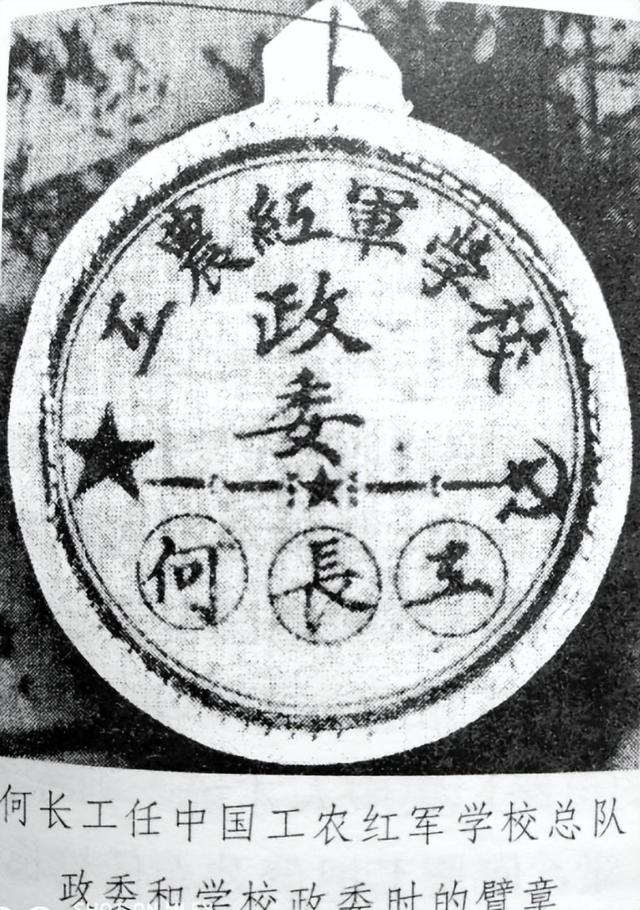 工農紅軍學校
政
委
何長工
何长工任中国工农红军学校总队
政委和学校政委时的臂章